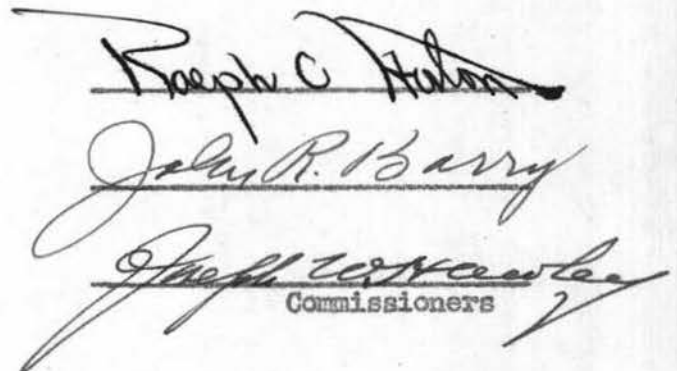 Ralph C
John R. Barry
Joseph W. Hawley
Commissioners